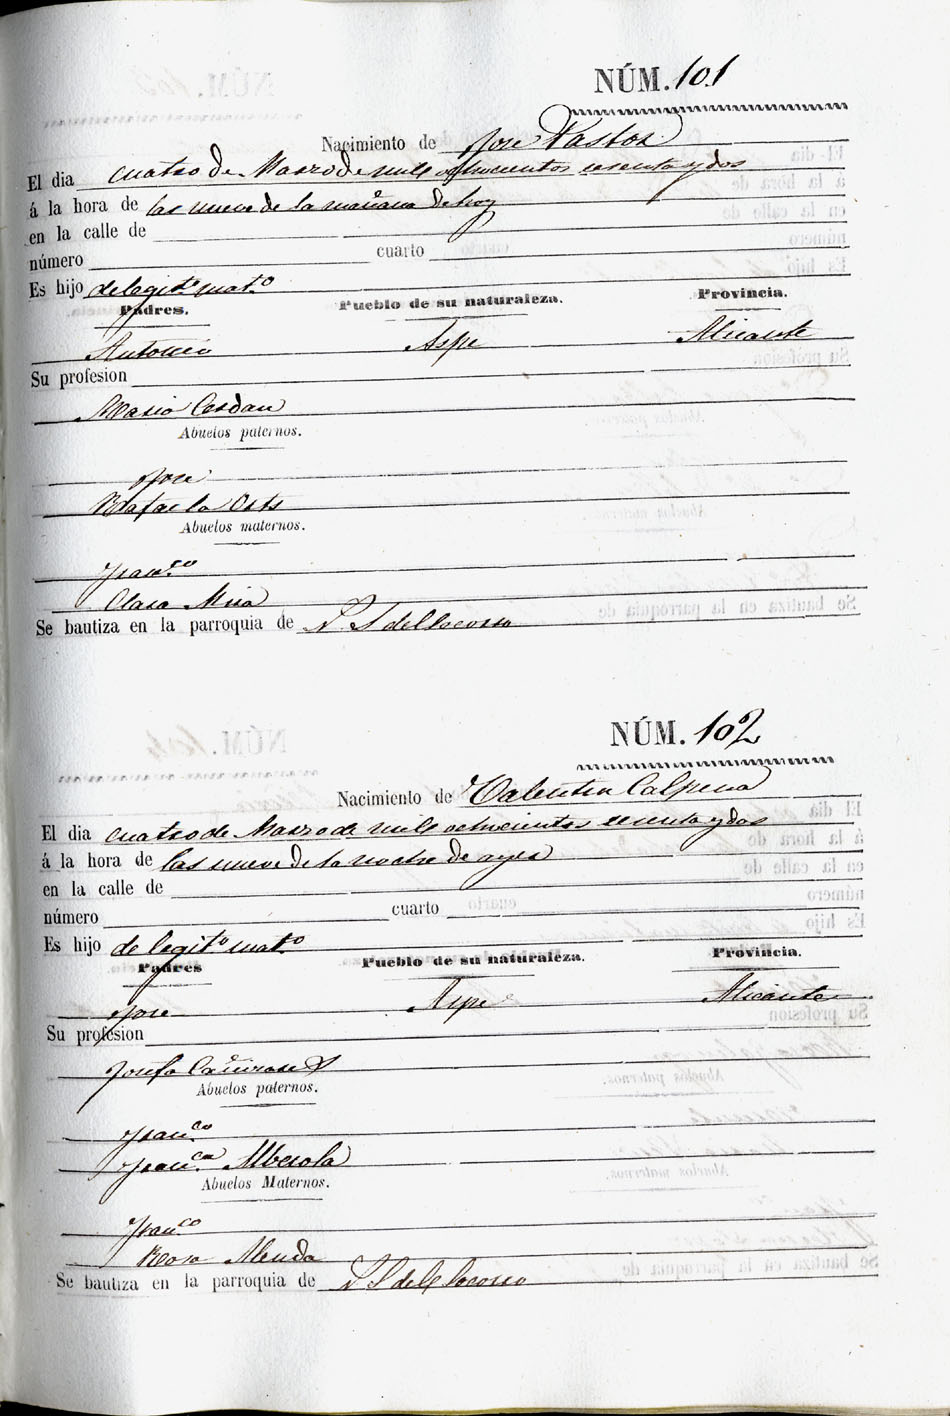 NÚM. 101
Nacimiento de José Pastor
El dia cuatro de Marzo de mil ochocientos sesenta y dos
á la hora de las nueve de la mañana de hoy
en la calle de
número cuarto
Es hijo de legit.º mat.º
Padres. Pueblo de su naturaleza. Provincia.
Antonio Aspe Alicante
Su profesion
Maria Cerdan
Abuelos paternos.
José
Rafaela Orts
Abuelos maternos.
Fran.co
Clara Mira
Se bautiza en la parroquia de N. S. del Socorro
NÚM. 102
Nacimiento de Valentin Calpena
El dia cuatro de Marzo de mil ochocientos sesenta y dos
á la hora de las nueve de la noche de ayer
en la calle de
número cuarto
Es hijo de legit.º mat.º
Padres Pueblo de su naturaleza. Provincia.
José Aspe Alicante
Su profesion
Josefa Cañizares
Abuelos paternos.
Fran.co
Fran.ca Alberola
Abuelos Maternos.
Fran.co
Rosa Almuda
Se bautiza en la parroquia de N. S. del Socorro